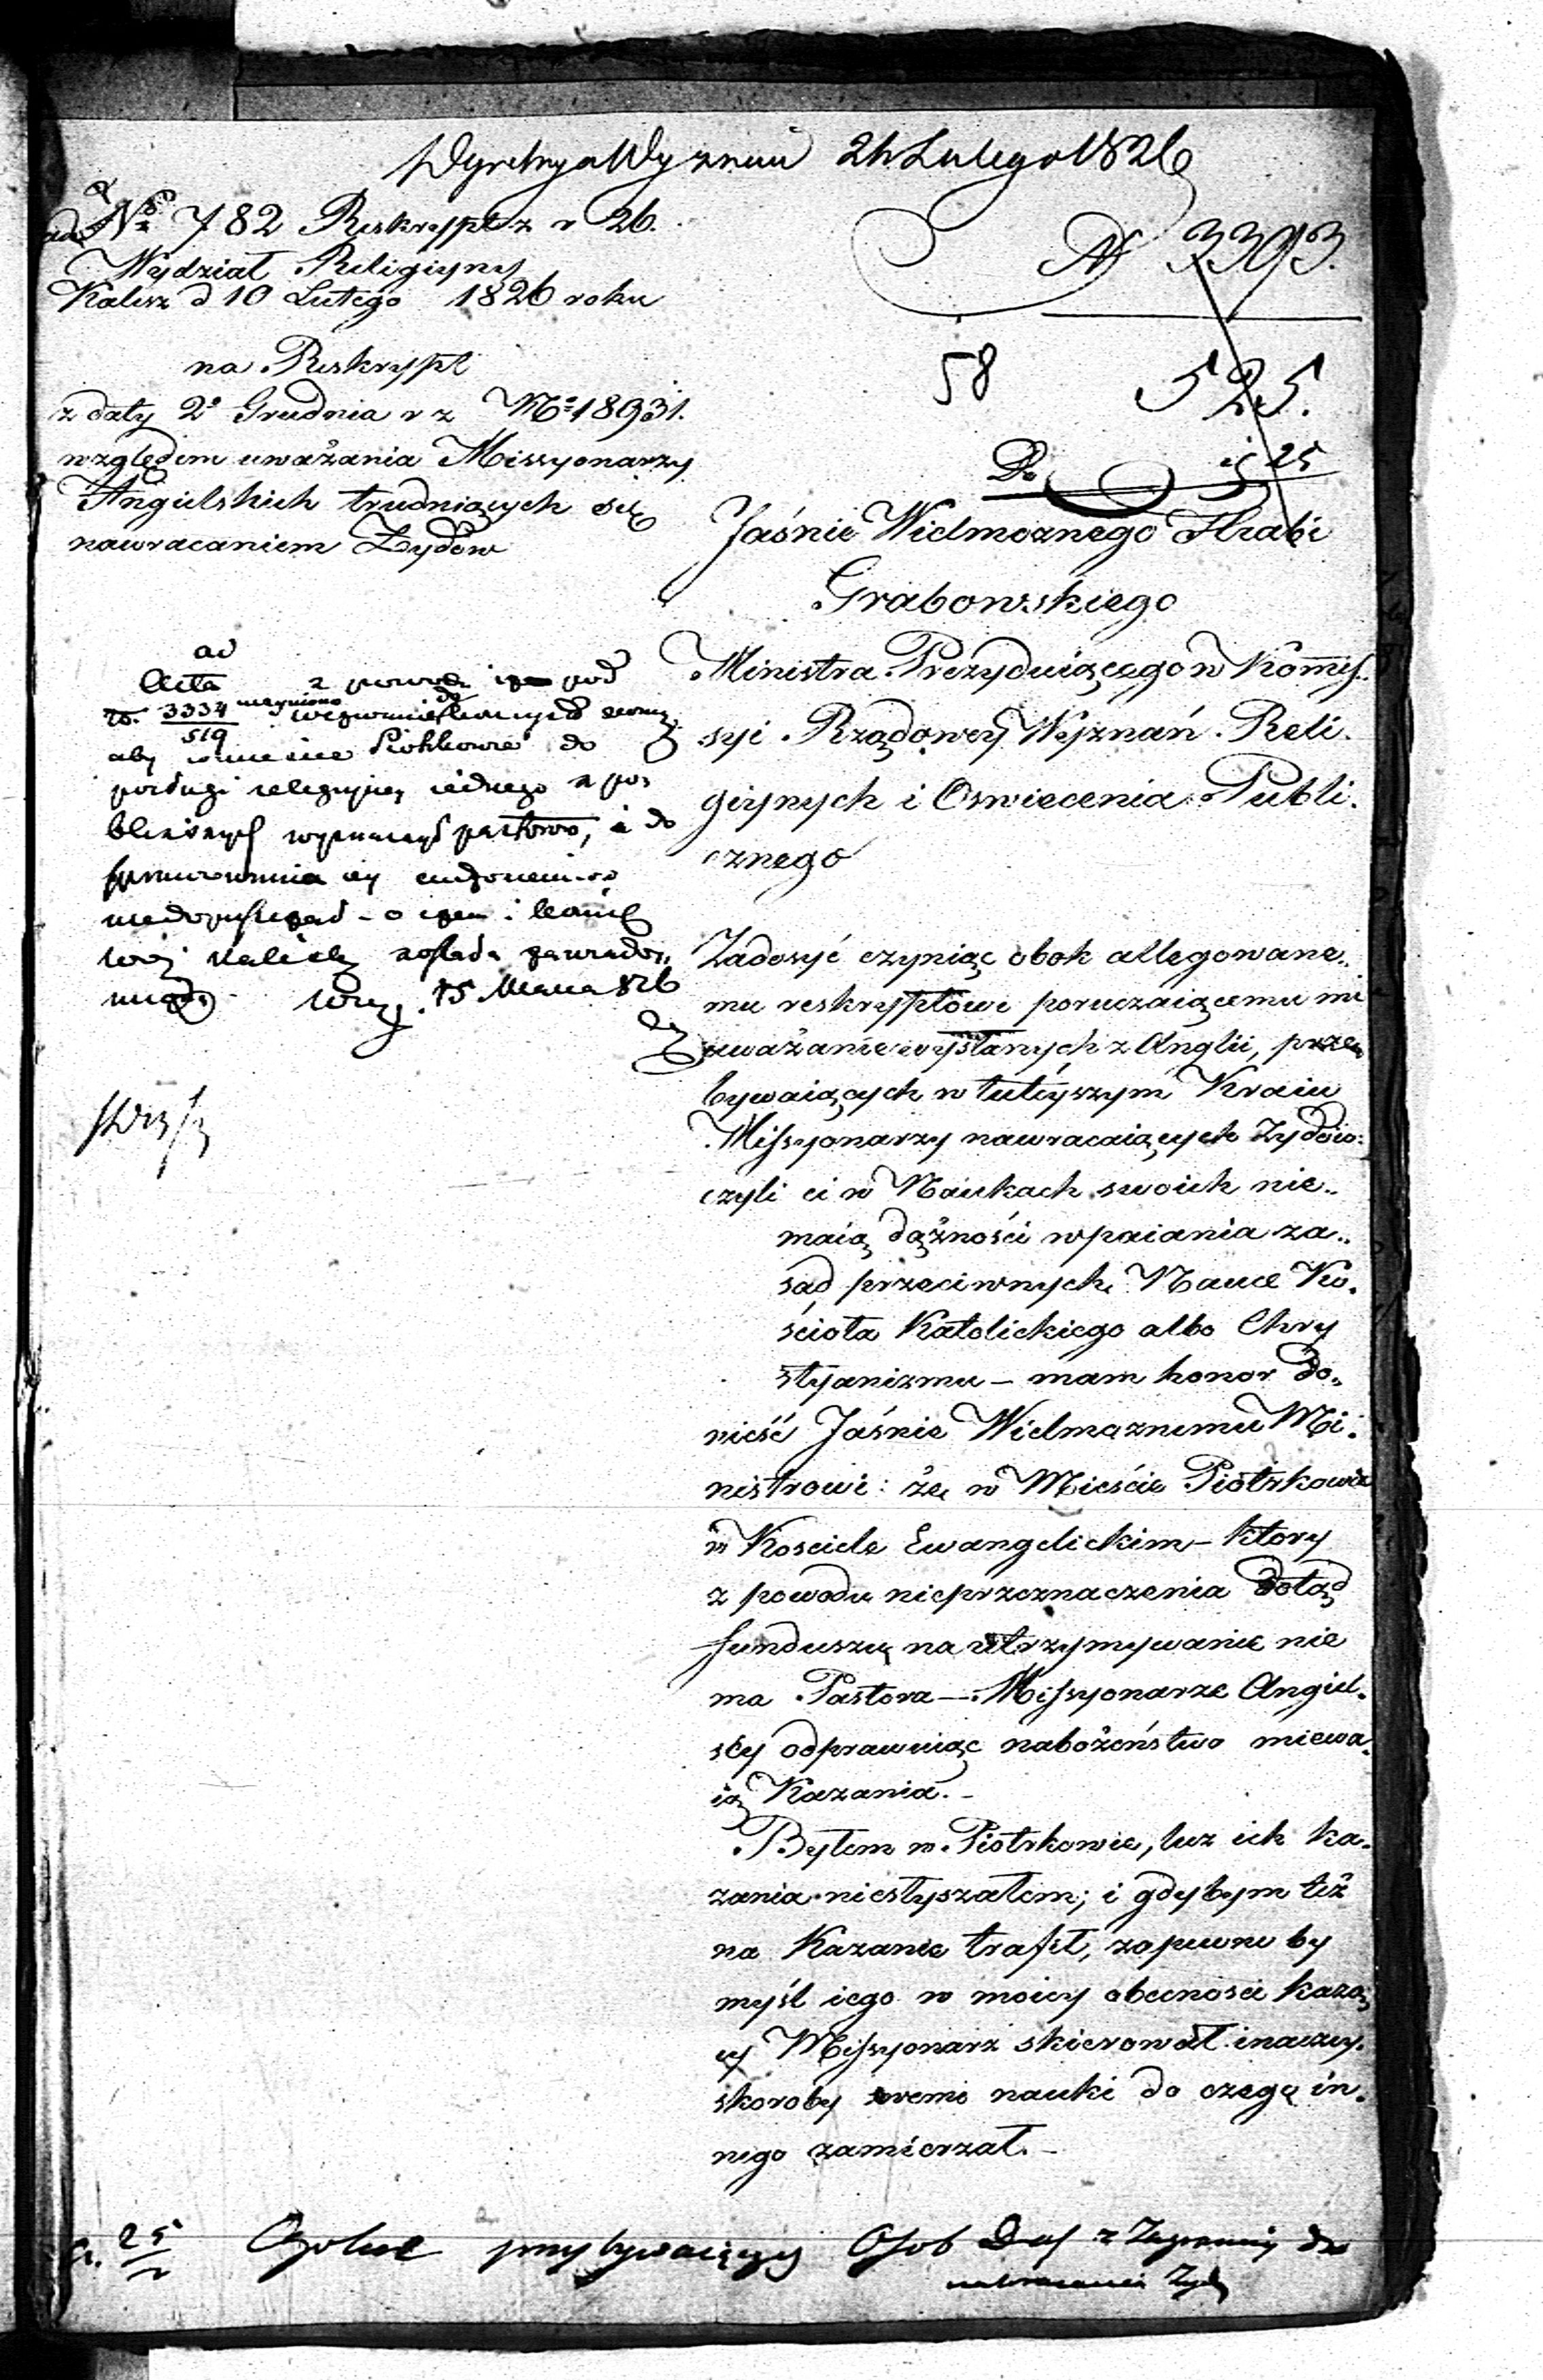 Dyrekcya Wyznań 24 Lutego 1826
ad N° 782 Reskrypt z r 26.
Wydział Religiyny
Kalisz d 10 Lutego 1826 roku
na Reskrypt
z daty 2° Grudnia r z N° 18931.
względem uważania Missyonarzy
Angielskich trudniących się
nawracaniem Żydów
N 3393.
58 525.
25
Jaśnie Wielmożnego Hrabi
Grabowskiego
Ministra Prezyduiącego w Kommis.
syi Rządowey Wyznań Reli.
giynych i Oswiecenia Publi.
cznego
ad
Acta
3334
519
aby w mieście Piotrkowie do
posługi religiyney iednego z po
bliższych wyznaczył pastorów, i do
niedopuszczał - o czem i
15 Marca 826
Zadosyć czyniąc obok allegowane..
mu reskryptowi poruczaiącemu mi
uważanie wysłanych z Anglii, prze
bywaiących w tutéyszym Kraiu
Missyonarzy nawracaiących Żydów:
czyli ci w Naukach swoich nie..
maią dążności wpaiania za..
sad przeciwnych Nauce Ko.
ścioła Katolickiego albo Chry
styanizmu – mam honor do.
nieść Jaśnie Wielmożnemu Mi.
nistrowi: że w Mieście Piotrkowie
w Kosciele Ewangelickim – ktory
z powodu nieprzeznaczenia dotąd
funduszu na utrzymywanie nie
ma Pastora – Missyonarze Angiel.
scy odprawuiąc nabożeństwo miewa.
ią Kazania. –
Byłem w Piotrkowie, lecz ich ka.
zania niesłyszałem; i gdybym też
na Kazanie trafił, zapewne by
myśl iego w moiey obecnosci kazą
cy Missyonarz skierował inaczey.
skoroby nauki do czego in.
nego zamierzał. –
25 przybywaiących Osob z Zagranicy do
nawracania Żydów